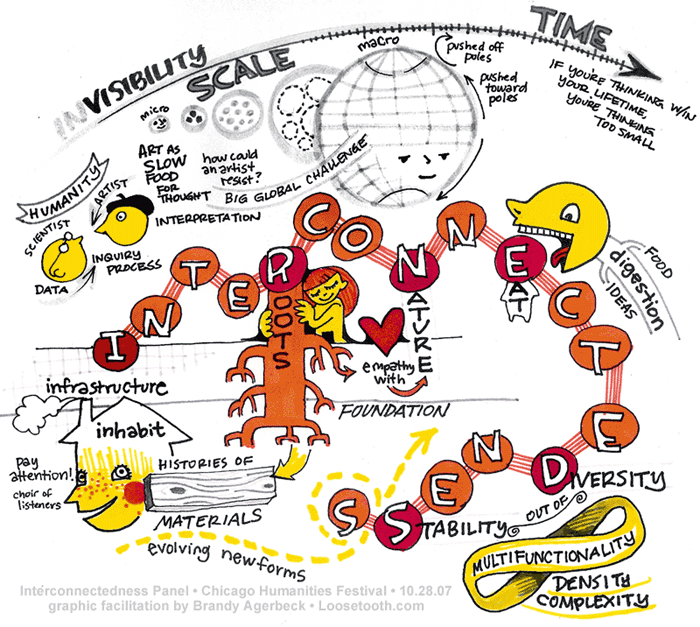 INVISIBILITY
SCALE
TIME
macro
pushed off
poles
pushed
toward
poles
IF YOU'RE THINKING W/IN
YOUR LIFETIME,
YOU'RE THINKING
TOO SMALL
micro
ART AS
SLOW
FOOD
FOR
THOUGHT
how could
an artist
resist?
BIG GLOBAL CHALLENGE
HUMANITY
ARTIST
INTERPRETATION
SCIENTIST
DATA
INQUIRY
PROCESS
INTERCONNECTEDNESS
ROOTS
NATURE
EAT
FOOD
digestion
IDEAS
empathy
with
infrastructure
FOUNDATION
inhabit
pay
attention!
choir of
listeners
HISTORIES OF
MATERIALS
evolving new forms
STABILITY
OUT OF
DIVERSITY
MULTIFUNCTIONALITY
DENSITY
COMPLEXITY
Interconnectedness Panel • Chicago Humanities Festival • 10.28.07
graphic facilitation by Brandy Agerbeck • Loosetooth.com